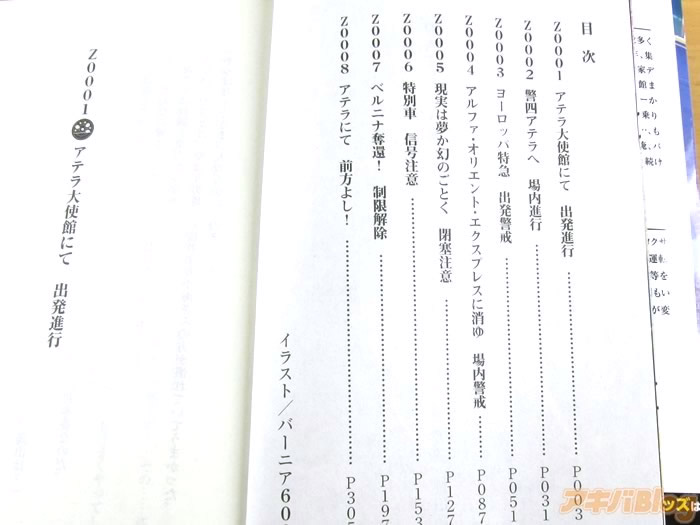 目次
Z0001 アテラ大使館にて 出発進行 P003
Z0002 警四アテラへ 場内進行 P031
Z0003 ヨーロッパ特急 出発警戒 P051
Z0004 アルファ・オリエント・エクスプレスに消ゆ 場内警戒 P087
Z0005 現実は夢か幻のごとく 閉塞注意 P127
Z0006 特別車 信号注意 P153
Z0007 ベルニナ奪還！ 制限解除 P197
Z0008 アテラにて 前方よし！ P305
イラスト／バーニア600
Z0001 アテラ大使館にて 出発進行
アキバBlog